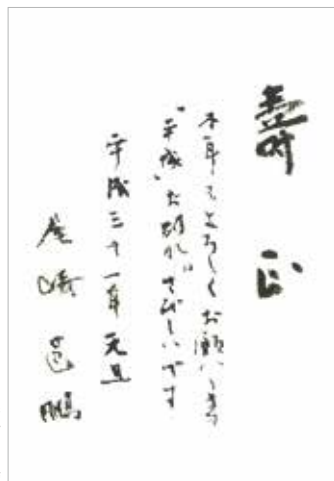 壽 正
本年もよろしくお願いします
"平成"お別れ"さびしいです
平成三十一年 元旦
尾崎邑鵬